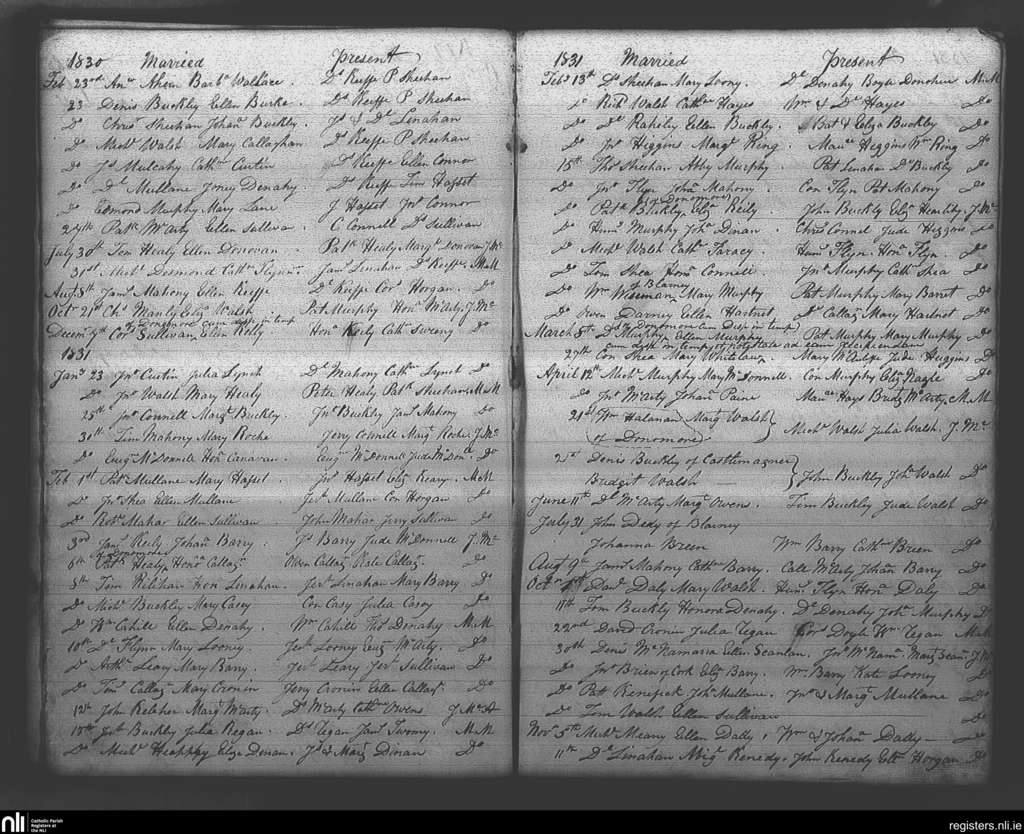 1830 Married Present
Feb 23rd Barba Wallace Ds Keeffe P Sheehan
23 Denis Buckley Ellen Burke. Ds Keeffe P Sheehan
Do Chrisr Sheehan Johana Buckley. Js & Ds Linahan
Do Michl Walsh Mary Callaghan. Ds Keeffe P Sheehan
Do Js Mulcahy Cathne Curtin Ds Keeffe Ellen Connor
Do Dl Mullane Joney Denahy. Ds Keeffe Tim Hasset
Do Edmond Murphy Mary Lane J Hasset Jno Connor
24th Patk McCarty Ellen Sulliva C Connell Ds Sullivan
July 30th Tom Healy Ellen Donovan. Patk Healy Margt Donovan J. Mc
31st. Michl Desmond Cathne Flynn Jams Linahan Ds Keeffe. M.M
Augt 8th Jams Mahony Ellen Keeffe Ds Keeffe Cors Horgan. Do
Octr 21st Chs Manly Eliza Walsh Pat Murphy Honr McArty. J. Mc
of Donomore cum disp in temp
Decem 7th Cors Sullivan Ellen Reily Honr Cathne Sweeny Do
1831
Jany 23 Jno Curtin Julia Lynch Ds Mahony Cathne Lynch Do
Do Jno Walsh Mary Healy Peter Healy Patk Sheehan M.M
25th Jno Connell Margt Buckley. Jno Buckley Jams Mahony Do
30th Tim Mahony Mary Roche Jerry Connell Margt Roche J. Mc
Do Eugn McDonnell Honr Canavan. Eugn McDonnell Jude McDonl. Do
Feb 1st Pat Mullane Mary Hasset. Js Hasset Eliza Keary. M.M
Do Jno Shea Ellen Mullane Jerh Mullane Con Horgan Do
Do Robt Mahar Ellen Sullivan John Mahar Jerry Sullivan Do
3rd Jams Reily Johana Barry. Js Barry Jude McDonnell J. Mc
of Donomore
6th Patk Healy Honra Callagn Owen Callagn Kate Callagn. Do
8th Tim Kelehar Hon Linahan. Jas Linahan Mary Barry Do
Do Michl Buckley Mary Casey Con Casy Julia Casey Do
Do Wm Cahill Ellen Denahy. Wm Cahill Ths Denahy M.M
10th Ds Flynn Mary Looney. Jerh Looney Eugn McArty. Do
Do Leary Mary Barry. Jerh Leary Jerh Sullivan Do
Do Timy Callagn Mary Cronin Jerry Cronin Ellen Callagn. Do
12th John Kelehar Margt McArty. Ds McArty Cathne Owens J. McA
15th Jno Buckley Julia Regan. Ds Tegan Jams Twomy. M.M
Do Michl Heaphy Eliza Dinan. Js & Margt Dinan Do
1831 Married Present
Feby 13th Ds Sheehan Mary Loony. Ds Denahy Donohue M.M
Do Richd Walsh Cathne Hayes Wm & Ds Hayes Do
Do Ds Rahily Ellen Buckley. Bat & Eliza Buckly Do
Do Js Higgins Margt Ring. Maue Heggins Wm Ring Do
15th Ths Sheehan Abby Murphy. Pat Linahan Ds Buckly Do
Do Jno Flyn Johna Mahony. Con Flyn Pat Mahony Do
of Donomore
Do Patk Buckley Eliza Reily. John Buckly Eliza J. Mc
Do Humy Murphy Joha Dinan. Chrisr Connel Jude Higgins Do
Do Michl Walsh Cathne Humy Flyn. Honr Flyn. Do
Do Tom Shea Honr Connell. Jno Murphy Cath Shea Do
of Blarney
Do Wm Wiseman Mary Murphy Pat Murphy Mary Barret Do
Do Owen Darney Ellen Hartnet Ds Callagn Mary Hartnet Do
of Donomore cum disp in temp
March 8th Ds Murphy, Ellen Murphy Pat Murphy Mary Murphy Do
cum disp in tempy et potestate ad eam
27th Con Shea Mary Whitelaw Mary Jude Huggins Do
April 12th Michl Murphy Mary McDonnell. Con Murphy Eliza Nagle Do
Do Jno McArty Johana Paine Maue Hays Bridgt McArty M.M
21st Wm Halanan Margt Walsh
of Donomore Michl Walsh Julia Walsh. J. Mc
21st Denis Buckley of Castlemagner
Bridgit Walsh John Buckley Joha Walsh Do
June 11th Ds McArty Margt Owens. Tim Buckley Jude Walsh Do
July 31 John Dedy of Blarney
Johanna Breen Wm Barry Cathne Brien Do
Augt 9th Jams Mahony Cathne Barry. Call McArty Johana Barry Do
Octr Danl Daly Mary Walsh. Humy Flyn Honr Daly Do
11th Tom Buckly Honora Denahy. Ds Denahy Joha Murphy D
22nd David Cronin Julia Tegan Cors Doyle Wm Tegan M.M
30th Denis McNamara Ellen Scanlan. Jno McNam. Margt Scan. J. Mc
Do Jno Brien of Cork Eliza Barry. Wm Barry Kate Looney Do
Do Pat Kenefick Joha Mullane. Jno & Margt Mullane Do
Do Tom Walsh Ellen Sullivan Do
Nov 5th Michl Meany Ellen Dally. Wm & Johana Dally Do
11th Ds Linahan Kenedy. John Kenedy Horgan Do
nli Catholic Parish
Registers at
the NLI
registers.nli.ie